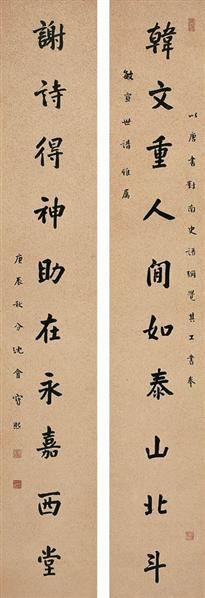 以唐書對南史語頗覺其工書奉
韓文重人間如泰山北斗
敏宣世譜雅屬
謝詩得神助在永嘉西堂
庚辰秋分沈會窗熙